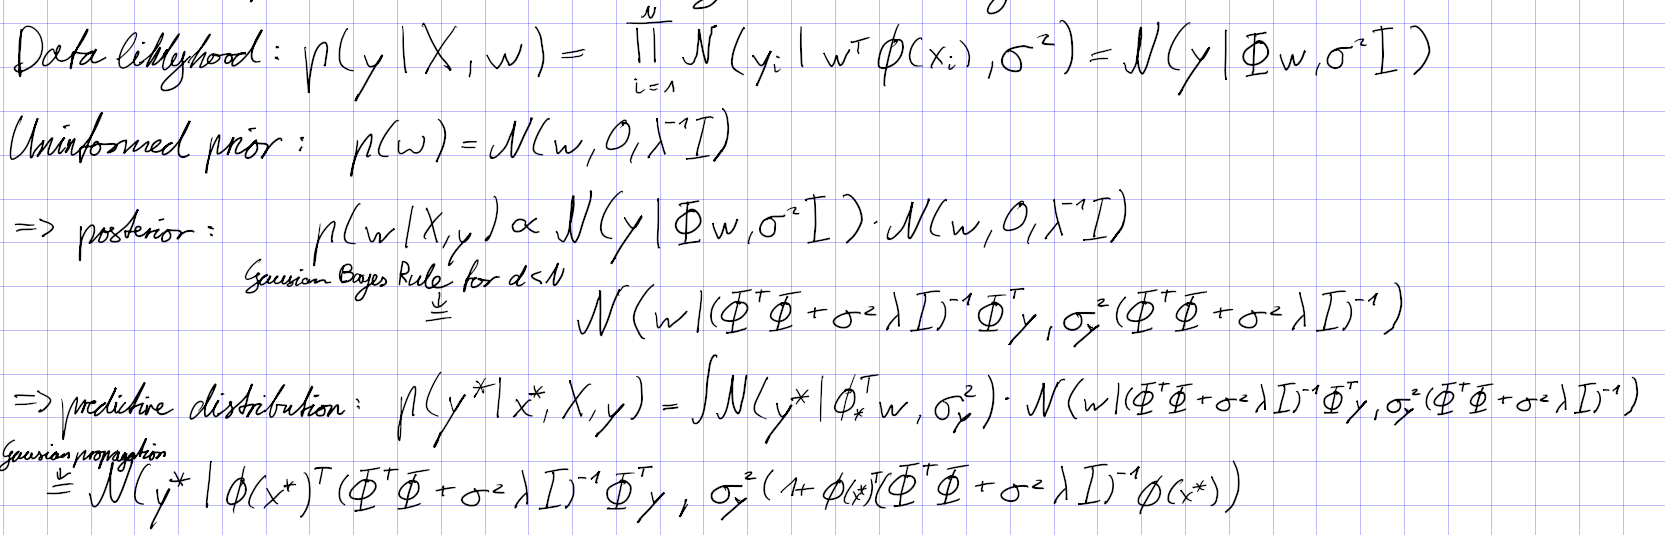 Data liklyhood: p(y|X,w) = ∏_{i=1}^{N} N(y_i | w^T ϕ(x_i), σ²) = N(y|Φw, σ²I)
Uninformed prior: p(w) = N(w, 0, λ⁻¹I)
=> posterior: p(w|X,y) ∝ N(y|Φw, σ²I) · N(w, 0, λ⁻¹I)
Gaussian Bayes Rule for d<N
↓
= N(w|(Φ^TΦ + σ²λI)⁻¹Φ^T y, σ_y²(Φ^TΦ + σ²λI)⁻¹)
=> predictive distribution: p(y*|x*, X, y) = ∫N(y*|ϕ_*^T w, σ_y²) · N(w|(Φ^TΦ + σ²λI)⁻¹Φ^T y, σ_y²(Φ^TΦ + σ²λI)⁻¹)
Gaussian propagation
↓
= N(y* | ϕ(x*)^T(Φ^TΦ + σ²λI)⁻¹Φ^T y, σ_y²(1+ϕ(x*)^T(Φ^TΦ + σ²λI)⁻¹ϕ(x*))